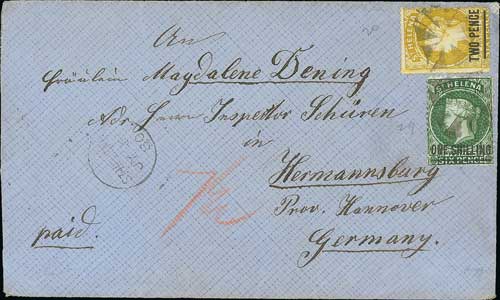 An
Fräulein Magdalene Dening
Adr. Herrn Inspector Schüren
in
Hermannsburg
Prov. Hannover
Germany.
paid.
ST HELENA
TWO PENCE
ST HELENA
ONE SHILLING
SIX PENCE